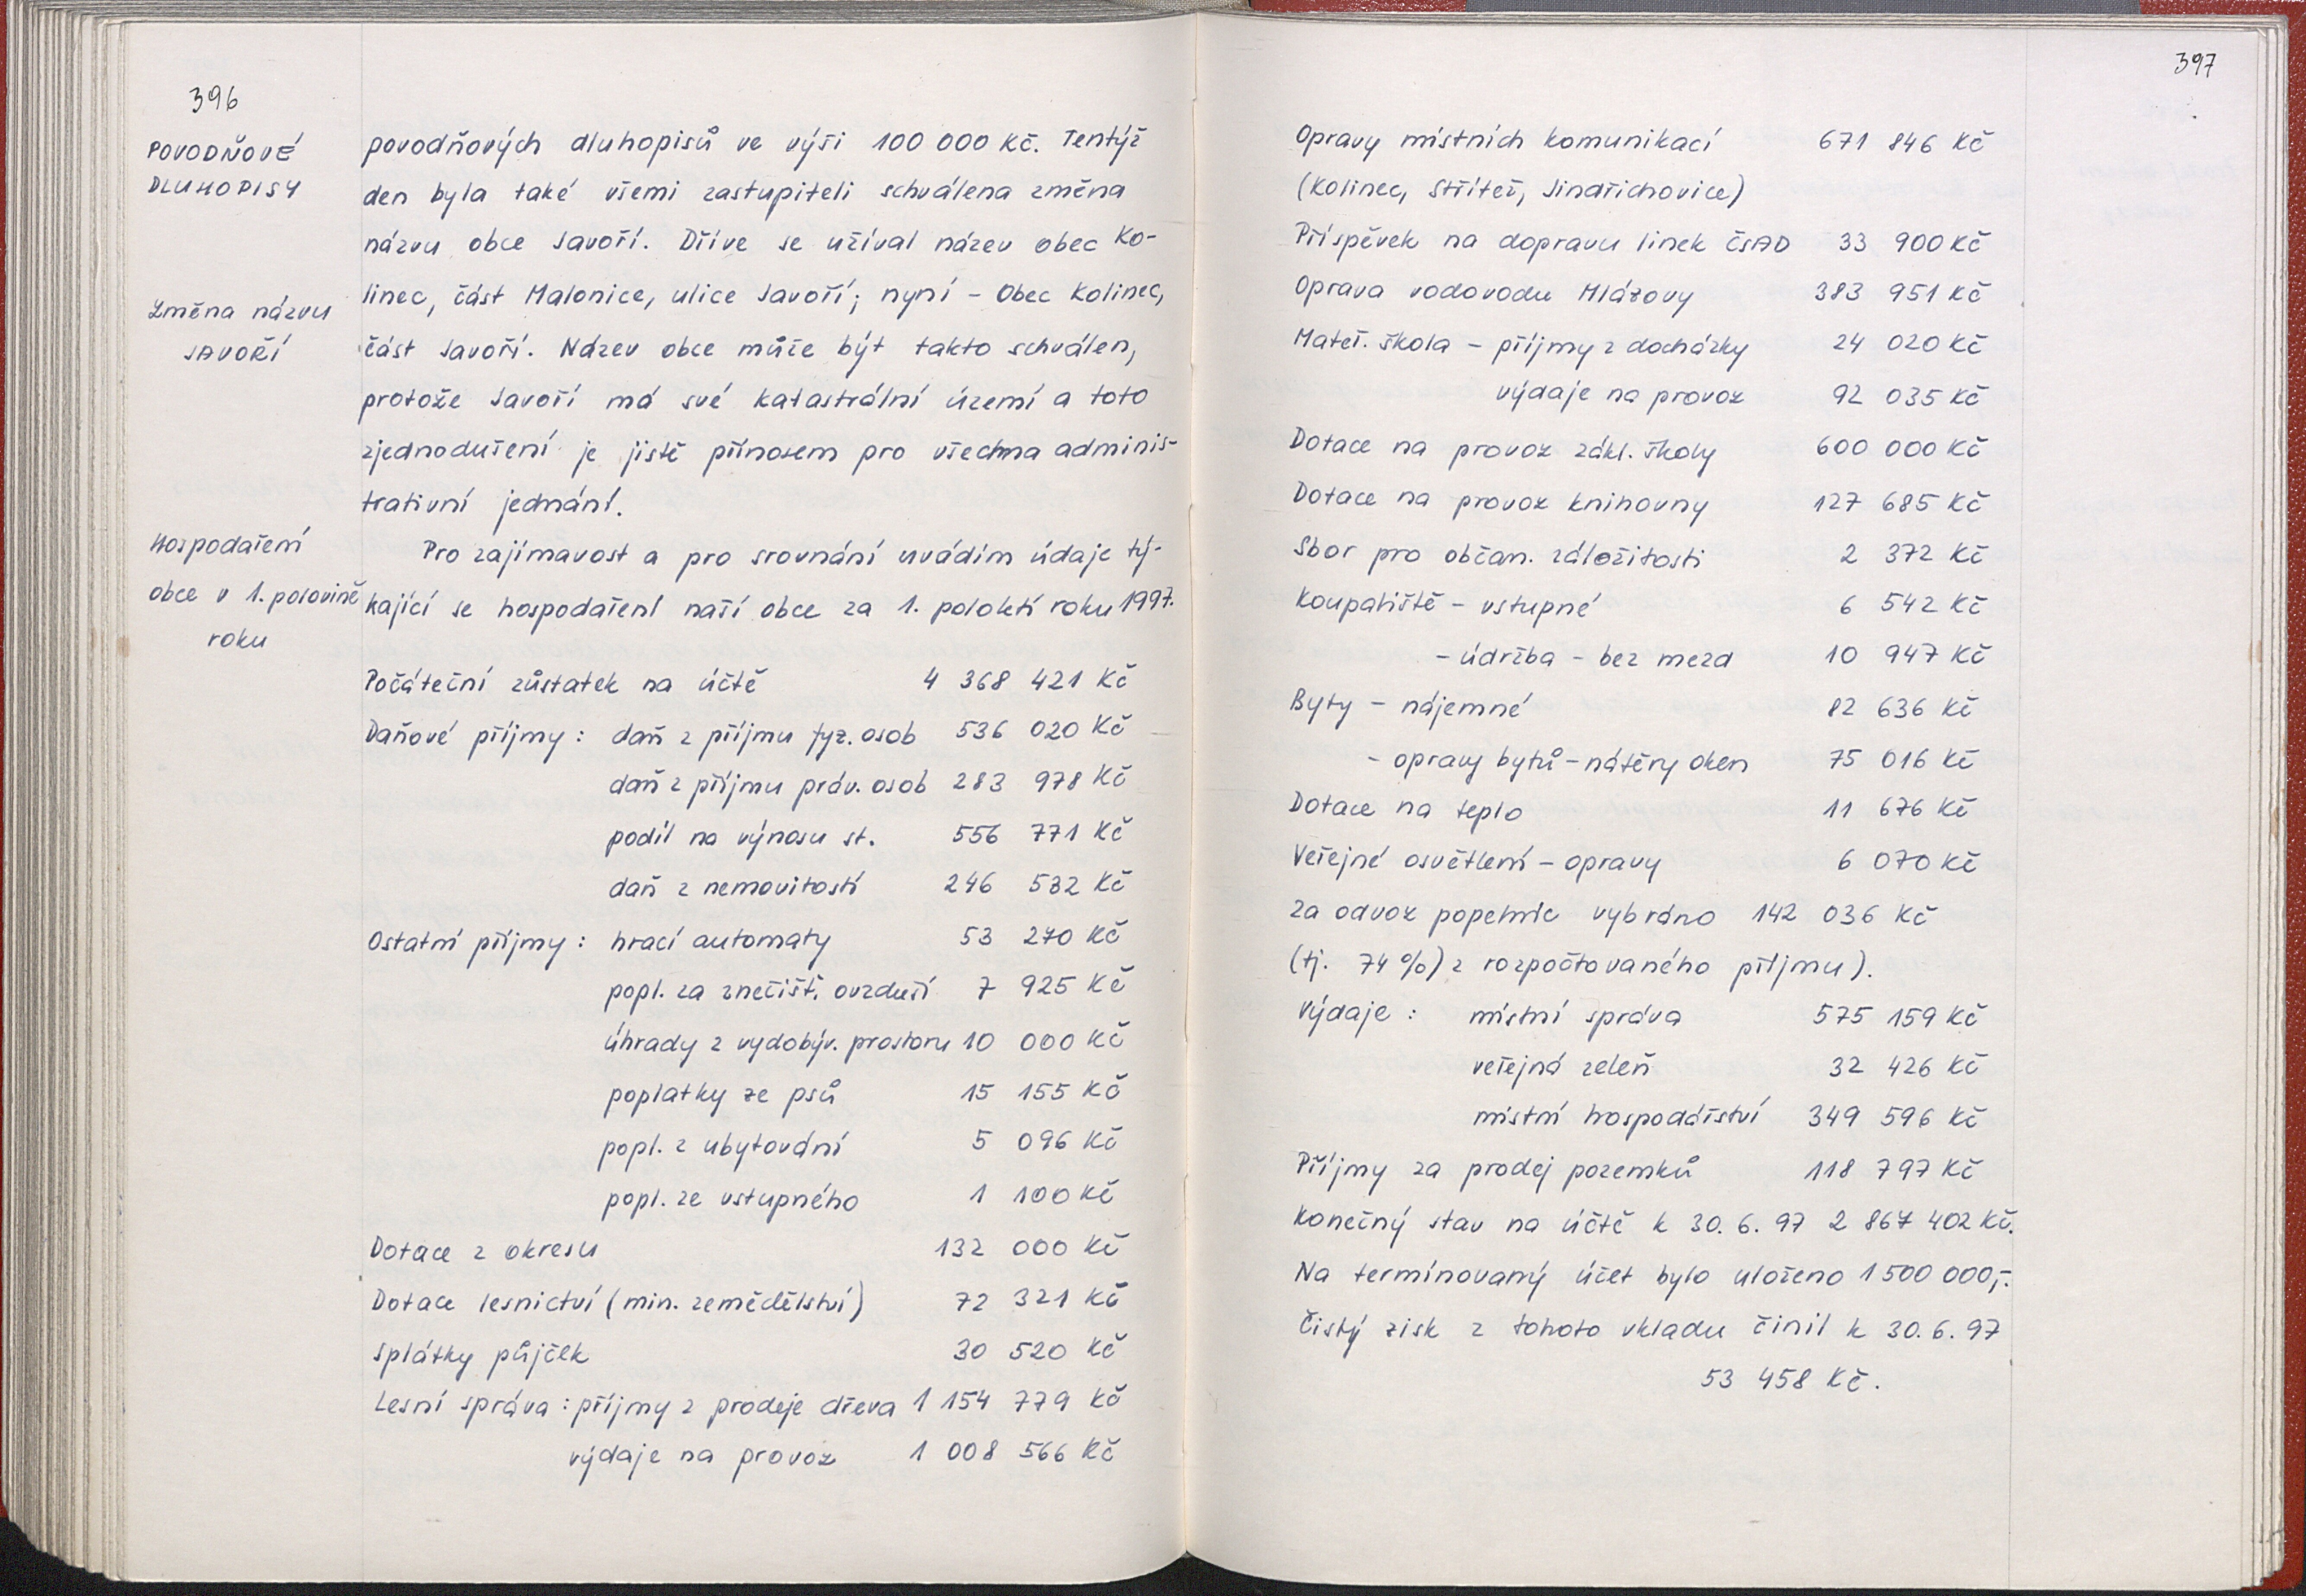 396
POVODŇOVÉ
DLUHOPISY
Změna názvu
JAVOŘÍ
Hospodaření
obce v 1. polovině
roku
povodňových dluhopisů ve výši 100 000 Kč. Tentýž
den byla také všemi zastupiteli schválena změna
názvu obce Javoří. Dříve se užíval název obec Ko-
linec, část Malonice, ulice Javoří; nyní - Obec Kolinec,
část Javoří. Název obce může být takto schválen,
protože Javoří má své katastrální území a toto
zjednodušení je jistě přínosem pro všechna adminis-
trativní jednání.
Pro zajímavost a pro srovnání uvádím údaje tý-
kající se hospodaření naší obce za 1. pololetí roku 1997.
Počáteční zůstatek na účtě 4 368 421 Kč
Daňové příjmy: daň z příjmu fyz. osob 536 020 Kč
daň z příjmu práv. osob 283 978 Kč
podíl na výnosu st. 556 771 Kč
daň z nemovitostí 246 532 Kč
Ostatní příjmy: hrací automaty 53 270 Kč
popl. za znečišť. ovzduší 7 925 Kč
úhrady z vydobýv. prostoru 10 000 Kč
poplatky ze psů 15 155 Kč
popl. z ubytování 5 096 Kč
popl. ze vstupného 1 100 Kč
Dotace z okresu 132 000 Kč
Dotace lesnictví (min. zemědělství) 72 321 Kč
Splátky půjček 30 520 Kč
Lesní správa: příjmy z prodeje dřeva 1 154 779 Kč
výdaje na provoz 1 008 566 Kč
397
Opravy místních komunikací 671 846 Kč
(Kolinec, Střítež, Jindřichovice)
Příspěvek na dopravu linek ČSAD 33 900 Kč
Oprava vodovodu Mlázovy 383 951 Kč
Mateř. škola - příjmy z docházky 24 020 Kč
výdaje na provoz 92 035 Kč
Dotace na provoz zákl. školy 600 000 Kč
Dotace na provoz knihovny 127 685 Kč
Sbor pro občan. záležitosti 2 372 Kč
Koupaliště - vstupné 6 542 Kč
- údržba - bez mezd 10 947 Kč
Byty - nájemné 82 636 Kč
- opravy bytů - nátěry oken 75 016 Kč
Dotace na teplo 11 676 Kč
Veřejné osvětlení - opravy 6 070 Kč
Za odvoz popelnic vybráno 142 036 Kč
(tj. 74 %) z rozpočtovaného příjmu).
Výdaje: místní správa 575 159 Kč
veřejná zeleň 32 426 Kč
místní hospodářství 349 596 Kč
Příjmy za prodej pozemků 118 797 Kč
Konečný stav na účtě k 30. 6. 97 2 867 402 Kč.
Na termínovaný účet bylo uloženo 1 500 000,-.
Čistý zisk z tohoto vkladu činil k 30. 6. 97
53 458 Kč.